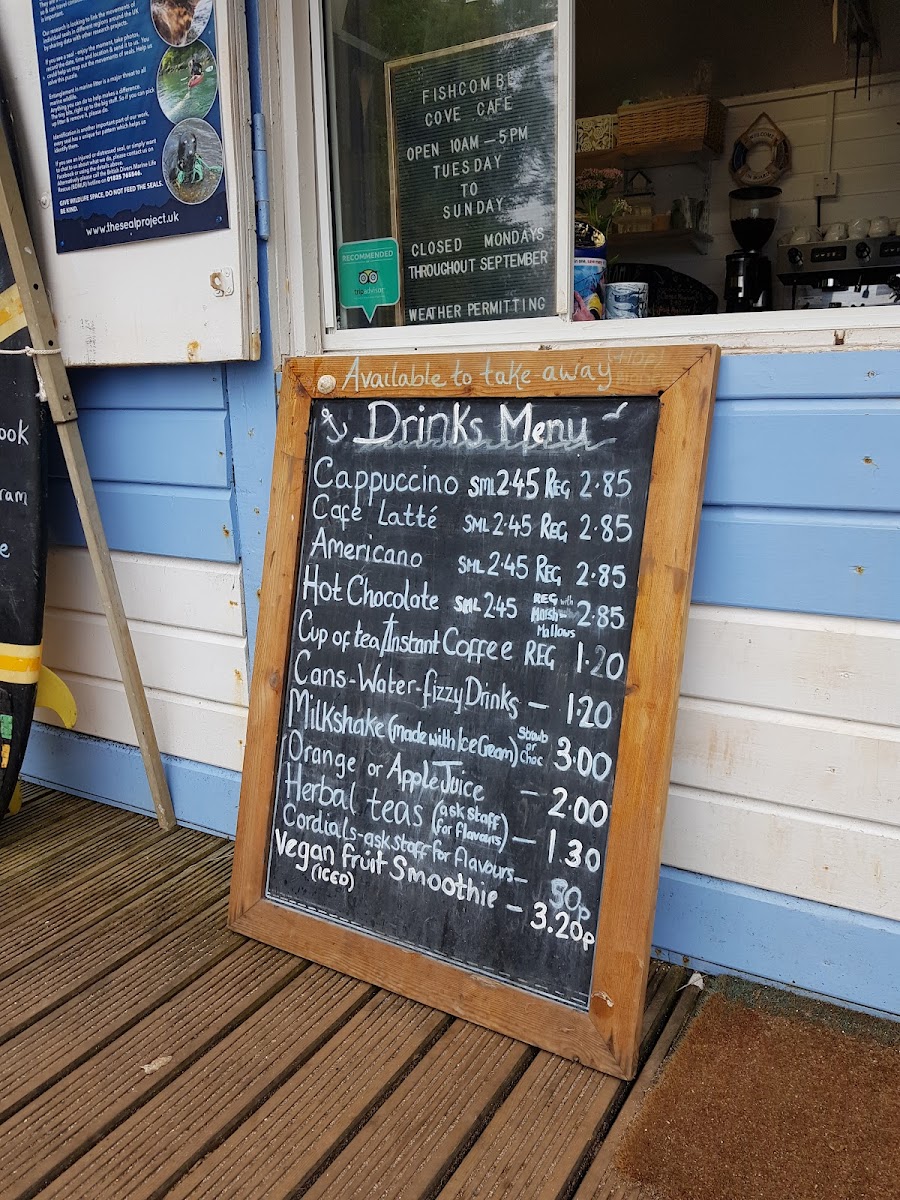 is important.
Our research is looking to link the movements of
individual seals in different regions around the UK
by sharing data with other research projects.
If you see a seal - enjoy the moment, take photos,
record the date, time and location & send it to us. You
could help us map out the movements of seals. Help us
solve this puzzle.
Entanglement in marine litter is a major threat to all
marine wildlife.
Anything you can do to help makes a difference.
The tiny bits, right up to the big stuff. So if you can pick
up litter & remove it, please do.
Identification is another important part of our work,
every seal has a unique fur pattern which helps us
identify them.
If you see an injured or distressed seal, or simply want
to chat to us about what we do, please contact us on
Facebook or using the details above.
Alternatively please call the British Divers Marine Life
Rescue (BDMLR) hotline on 01825 765546.
GIVE WILDLIFE SPACE, DO NOT FEED THE SEALS.
BE KIND.
www.thesealproject.uk
FISHCOMBE
COVE CAFE
OPEN 10AM — 5PM
TUESDAY
TO
SUNDAY
CLOSED MONDAYS
THROUGHOUT SEPTEMBER
WEATHER PERMITTING
RECOMMENDED
tripadvisor
WELCOME
ook
ram
e
Available to take away
Drinks Menu
Cappuccino SML 2.45 REG 2.85
Café Latté SML 2.45 REG 2.85
Americano SML 2.45 REG 2.85
Hot Chocolate SML 2.45 REG with Marsh-Mallows 2.85
Cup of tea/Instant Coffee REG 1.20
Cans-Water-fizzy Drinks — 1.20
Milkshake (made with Ice Cream) Strawb or Choc 3.00
Orange or Apple Juice — 2.00
Herbal teas (ask staff for flavours) — 1.30
Cordials-ask staff for flavours — 50p
Vegan Fruit Smoothie — 3.20p
(ICED)